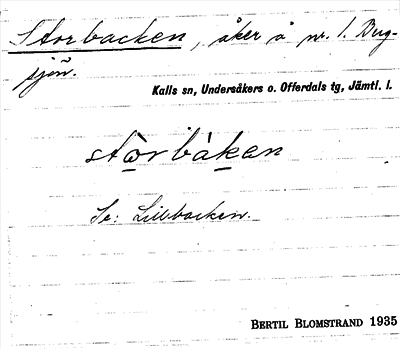 Storbacken, åker å nr. 1. Bug-
sjön.
Kalls sn, Undersåkers o. Offerdals tg, Jämtl. l.
stɷ̀rbàkan
Se: Lillbacken.
BERTIL BLOMSTRAND 1935